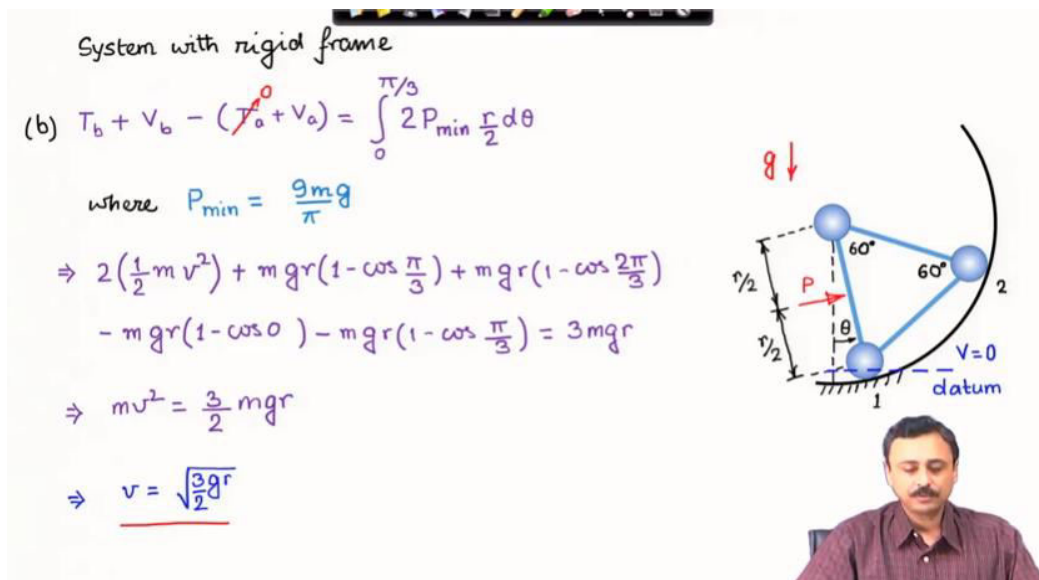 System with rigid frame
(b) T_b + V_b - (T_a + V_a) = ∫_0^{π/3} 2P_min r/2 dθ
0
where P_min = 9mg/π
⇒ 2(1/2 mv²) + mgr(1 - cos π/3) + mgr(1 - cos 2π/3)
- mgr(1 - cos 0) - mgr(1 - cos π/3) = 3mgr
⇒ mv² = 3/2 mgr
⇒ v = √(3/2 gr)
g
60°
60°
2
r/2
P
r/2
θ
V=0
datum
1